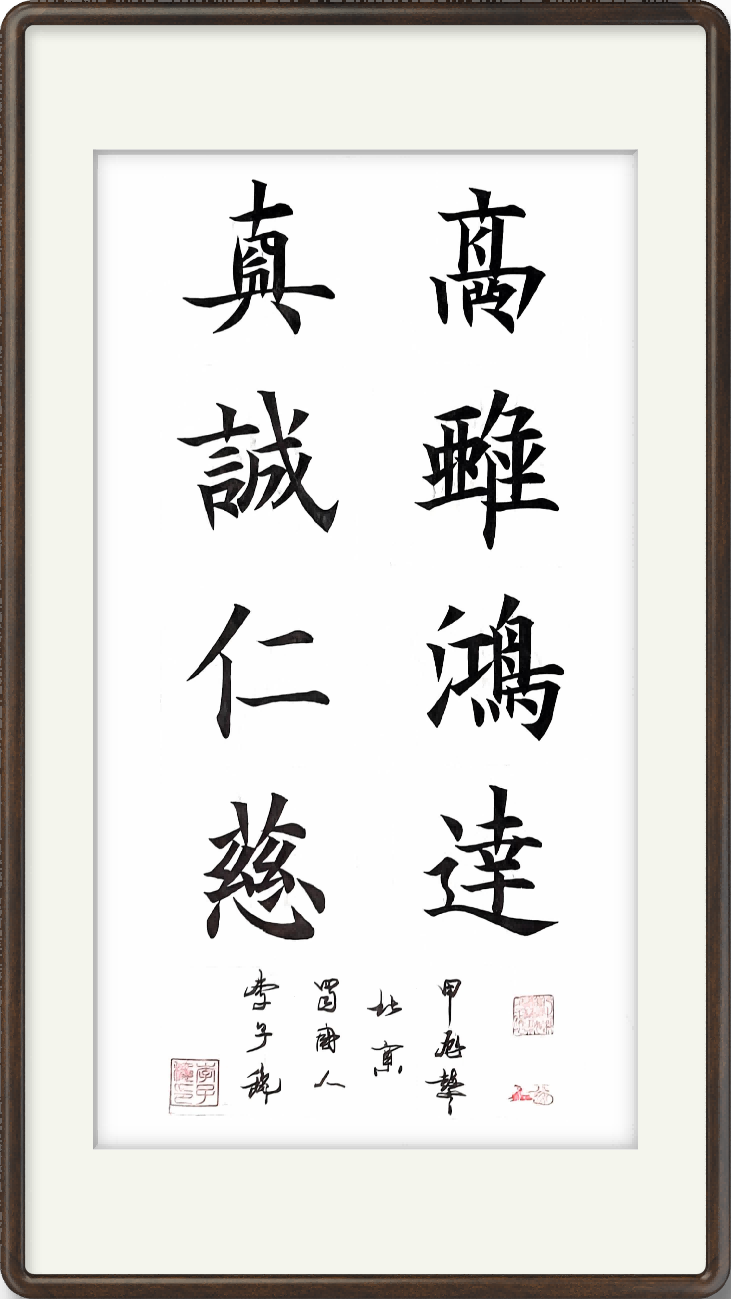 高雅鴻達
真誠仁慈
甲辰
北京
蜀人
李子